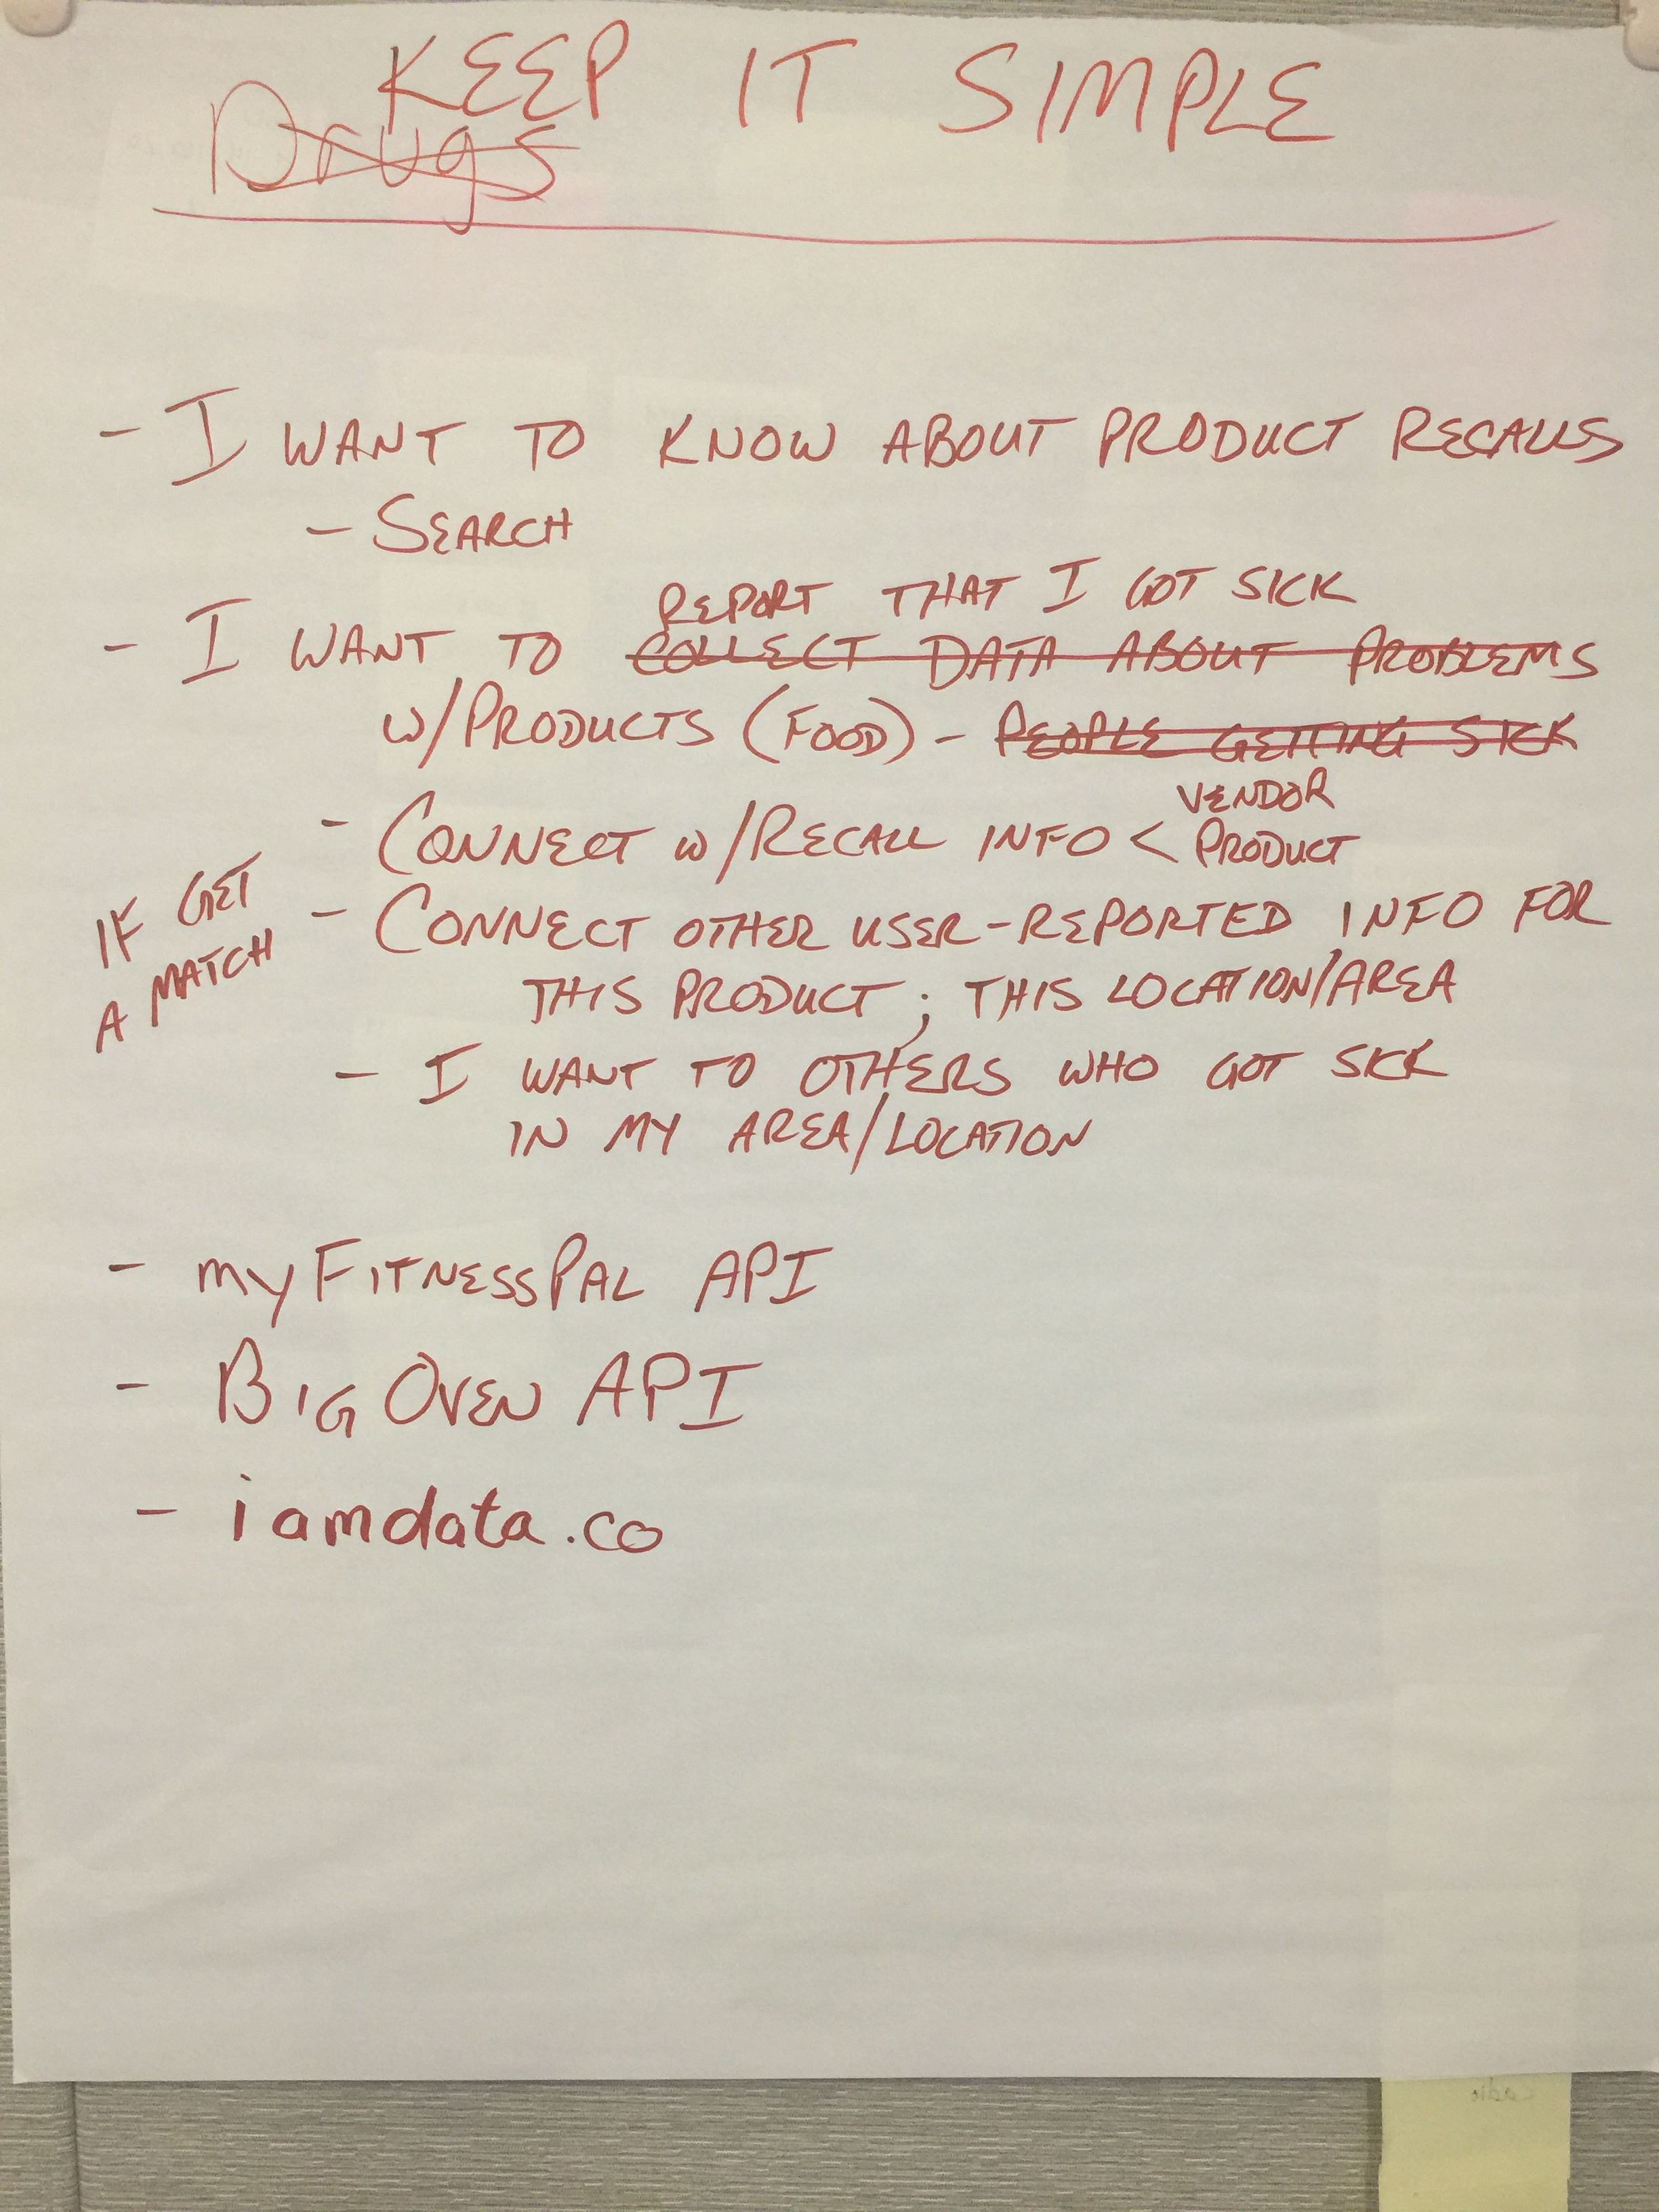 KEEP IT SIMPLE
Drugs
- I WANT TO KNOW ABOUT PRODUCT RECALLS
- SEARCH
REPORT THAT I GOT SICK
- I WANT TO COLLECT DATA ABOUT PROBLEMS
W/PRODUCTS (FOOD) - PEOPLE GETTING SICK
VENDOR
- CONNECT W/RECALL INFO < PRODUCT
IF GET
A MATCH
- CONNECT OTHER USER-REPORTED INFO FOR
THIS PRODUCT ; THIS LOCATION/AREA
- I WANT TO OTHERS WHO GOT SICK
IN MY AREA/LOCATION
- myFITNESSPAL API
- BIG OVEN API
- iamdata.co